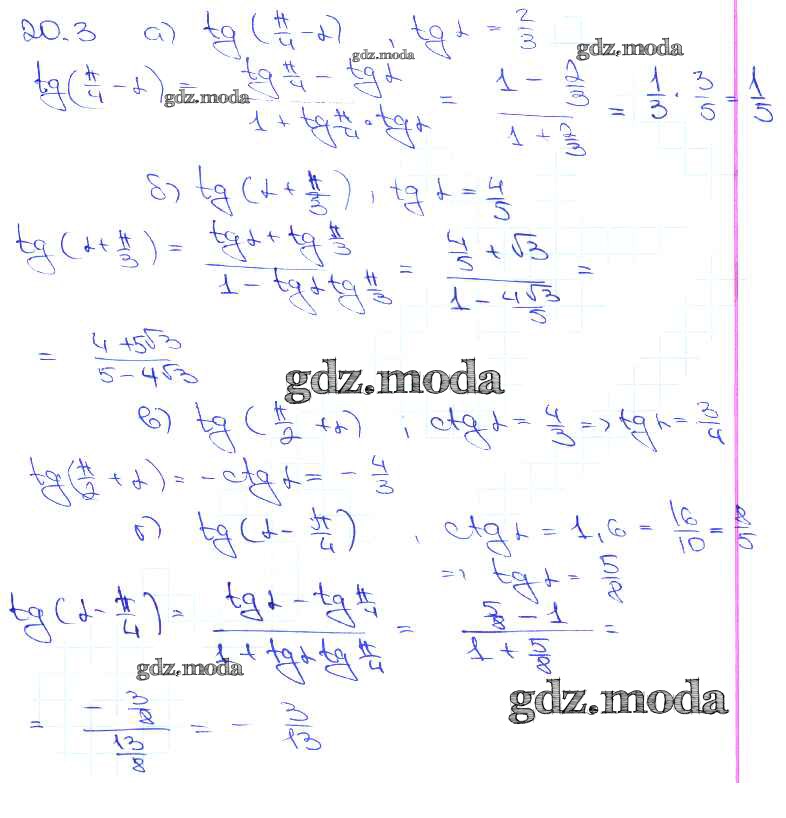 20.3 а) tg(π/4 - α), tgα = 2/3
gdz.moda gdz.moda
tg(π/4 - α) = (tg π/4 - tgα)/(1 + tg π/4 · tgα) = (1 - 2/3)/(1 + 2/3) = 1/3 · 3/5 = 1/5
gdz.moda
б) tg(α + π/3), tgα = 4/5
tg(α + π/3) = (tgα + tg π/3)/(1 - tgα tg π/3) = (4/5 + √3)/(1 - 4√3/5) =
= (4 + 5√3)/(5 - 4√3)
gdz.moda
в) tg(π/2 + α), ctgα = 4/3 => tgα = 3/4
tg(π/2 + α) = -ctgα = -4/3
г) tg(α - π/4), ctgα = 1,6 = 16/10 = 8/5
=> tgα = 5/8
tg(α - π/4) = (tgα - tg π/4)/(1 + tgα tg π/4) = (5/8 - 1)/(1 + 5/8) =
gdz.moda gdz.moda
= (-3/8)/(13/8) = -3/13